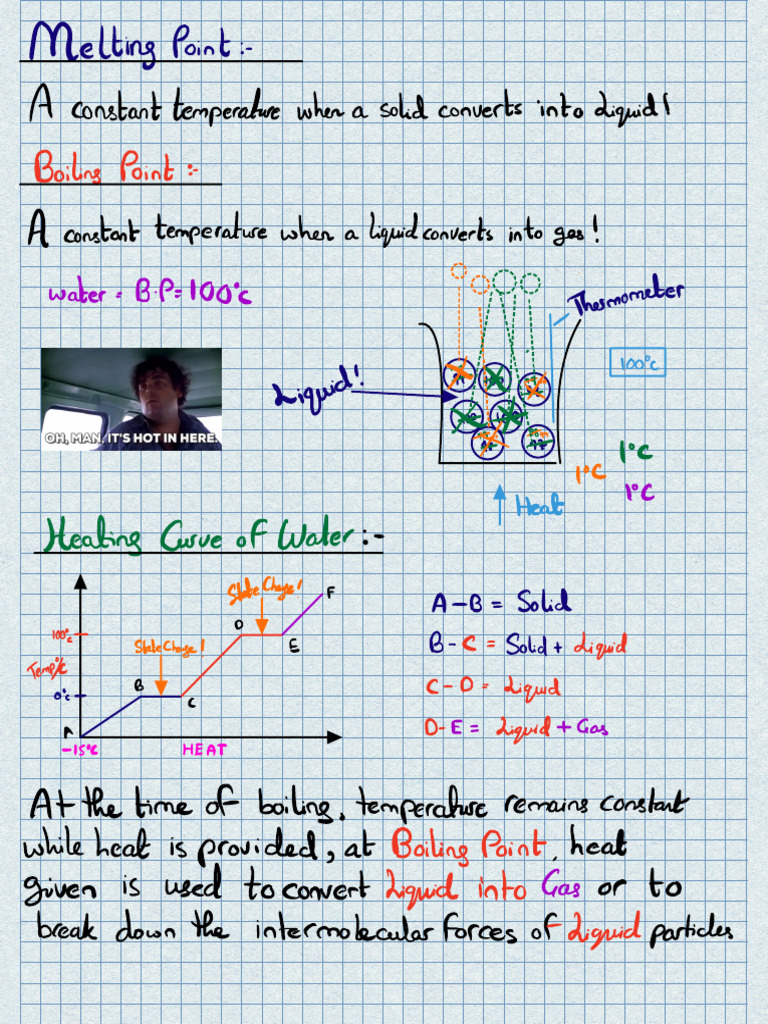 Melting Point :-
A constant temperature when a solid converts into Liquid!
Boiling Point :-
A constant temperature when a liquid converts into gas!
water = B.P = 100°C
Thermometer
100°C
OH, MAN, IT'S HOT IN HERE.
Liquid!
1°C
1°C
1°C
Heat
Heating Curve of Water :-
State Change!
F
A-B = Solid
D
100°C
State Change!
E
B-C = Solid + Liquid
Temp/°C
B
0°C
C
C-D = Liquid
A
D-E = Liquid + Gas
-15°C
HEAT
At the time of boiling, temperature remains constant
while heat is provided, at Boiling Point, heat
given is used to convert Liquid into Gas or to
break down the intermolecular forces of Liquid particles